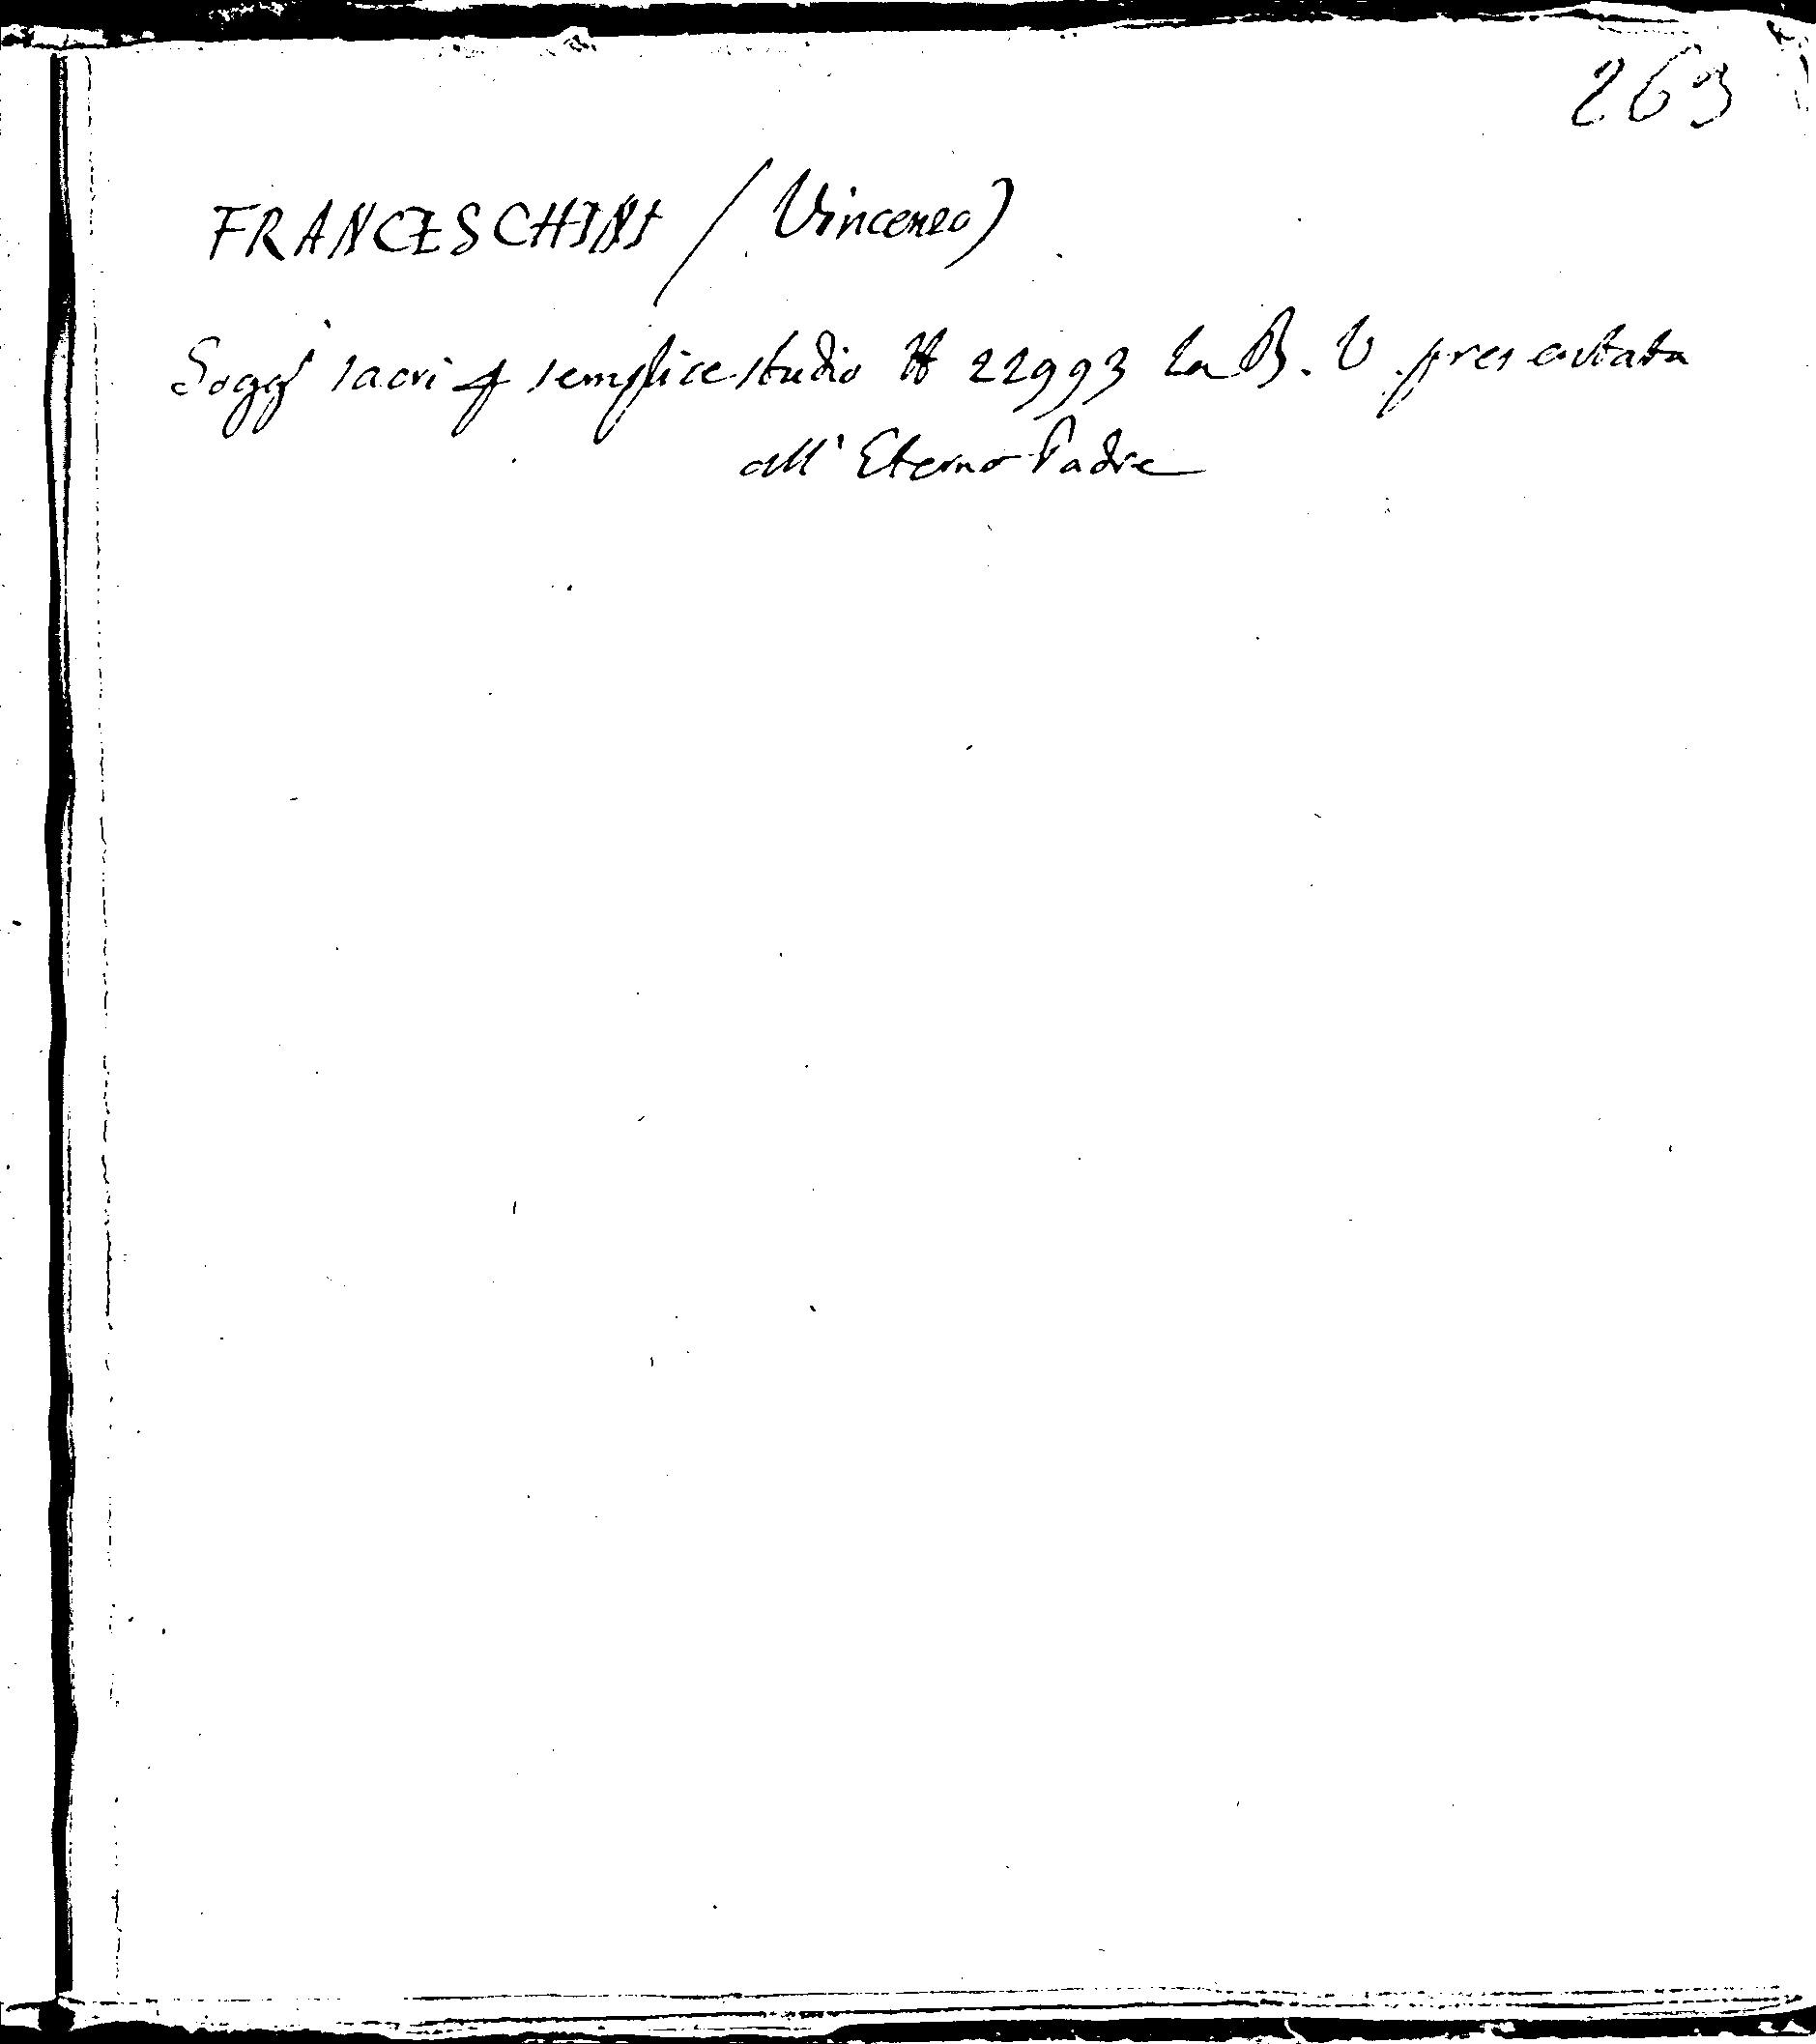 263
FRANCESCHINI (Vincenzo)
Sogg' sacri semplice studio # 22993 La B. V. presentata
all' Eterno Padre